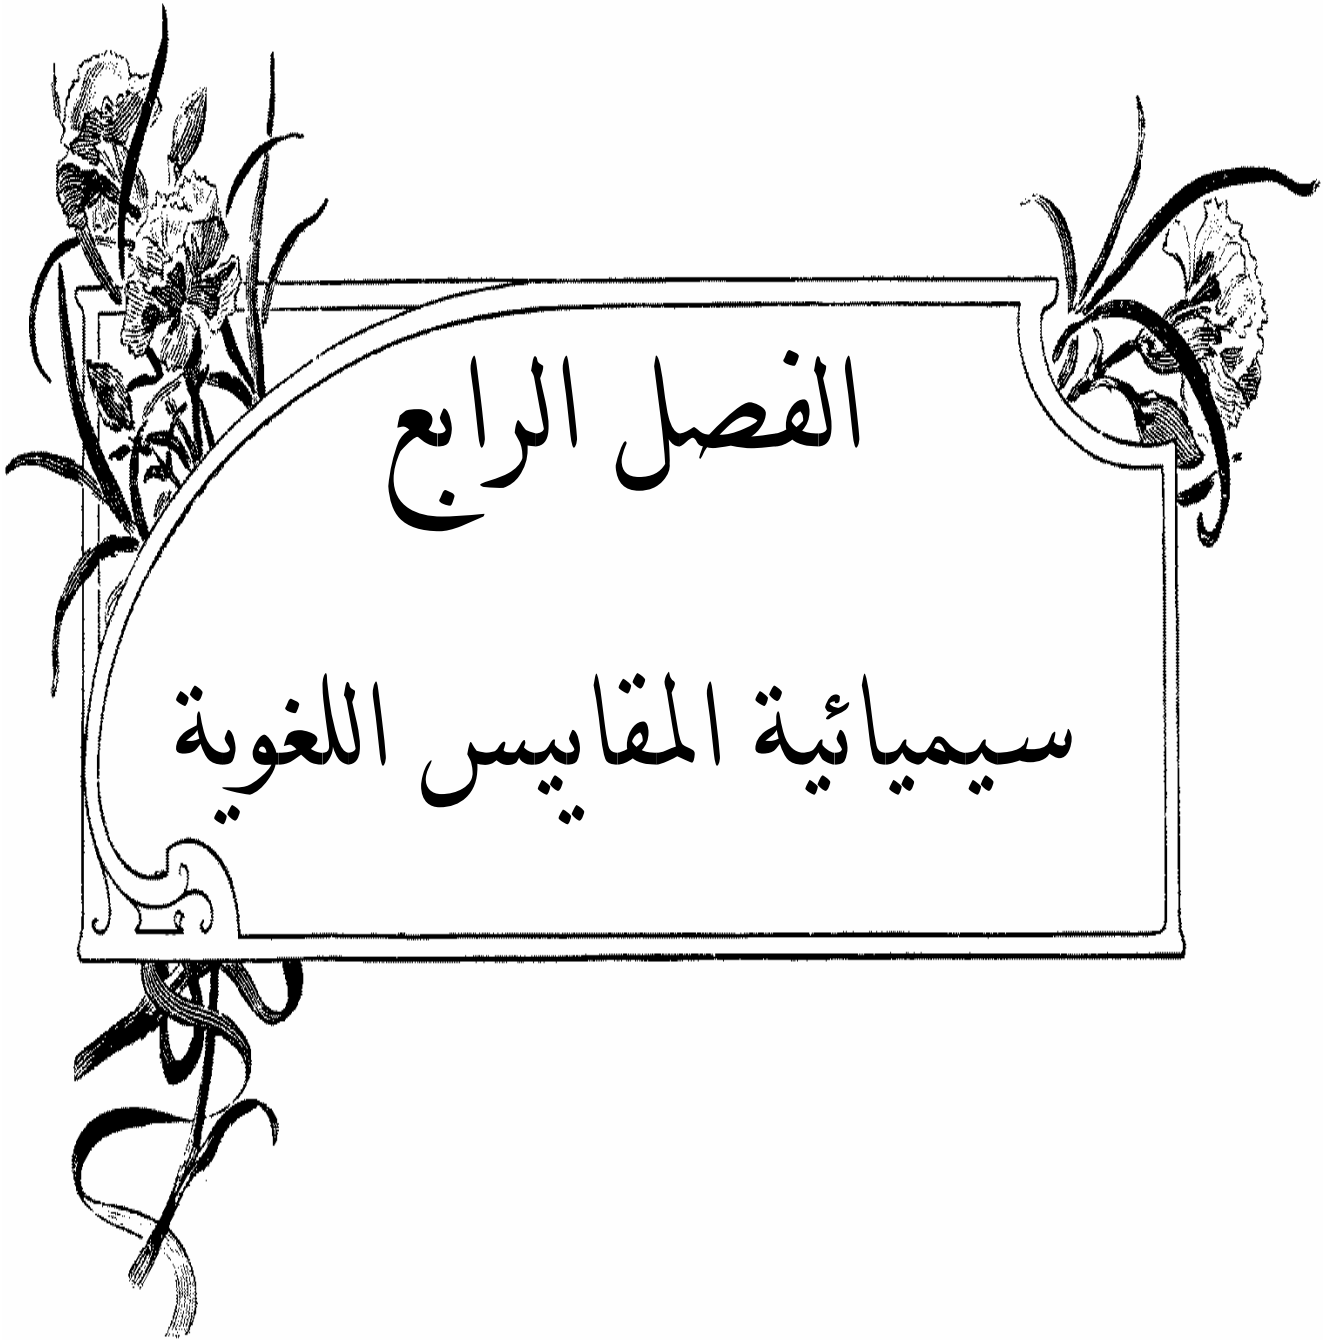 الفصل الرابع
سيميائية المقاييس اللغوية